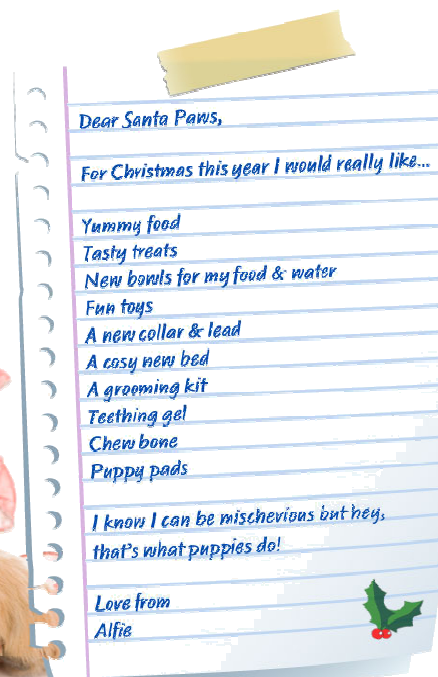 Dear Santa Paws,
For Christmas this year I would really like...
Yummy food
Tasty treats
New bowls for my food & water
Fun toys
A new collar & lead
A cosy new bed
A grooming kit
Teething gel
Chew bone
Puppy pads
I know I can be mischevious but hey,
that's what puppies do!
Love from
Alfie